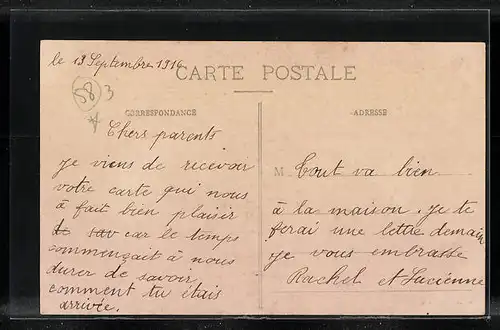 le 13 Septembre 1914
CARTE POSTALE
58 3
CORRESPONDANCE
Chers parents
je viens de recevoir
votre carte qui nous
à fait bien plaisir
car le temps
commençait à nous
durer de savoir
comment tu étais
arrivée.
ADRESSE
M Tout va bien
à la maison. je te
ferai une lettre demain
je vous embrasse
Rachel et Lucienne